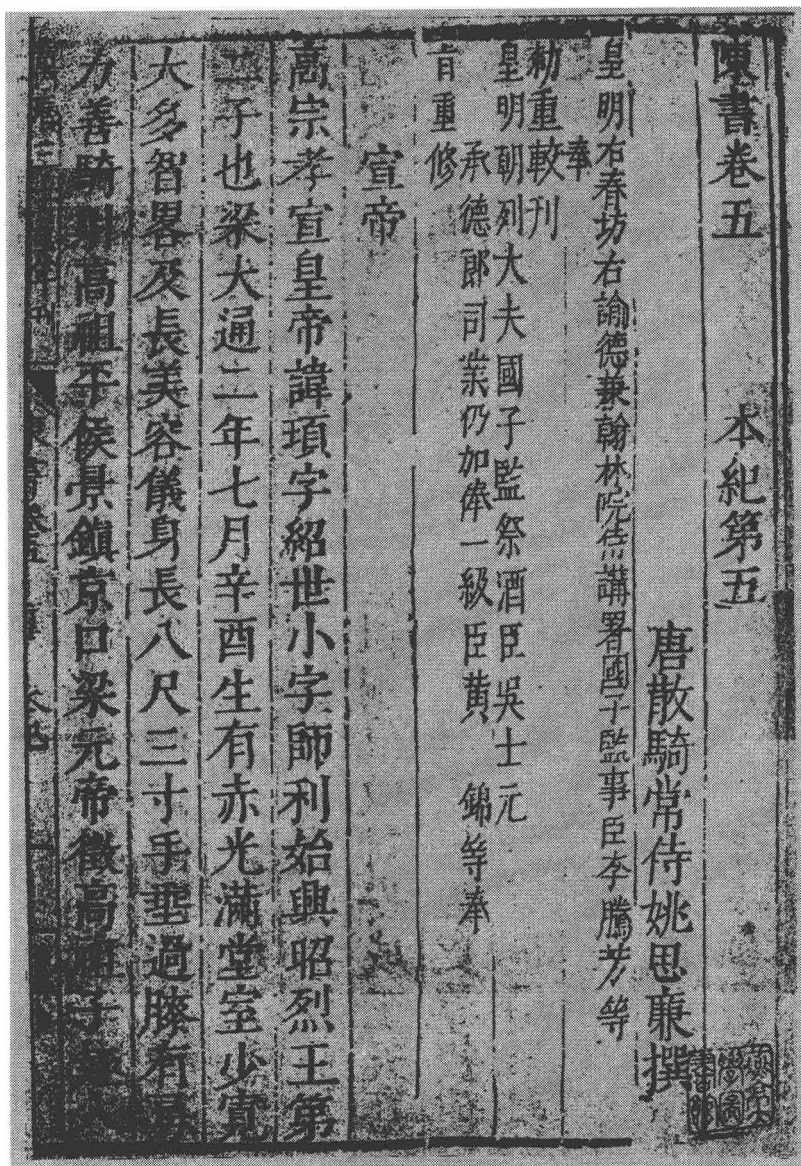 陳書卷五　本紀第五
唐散騎常侍姚思廉撰
皇明右春坊右諭德兼翰林院侍講署國子監事臣李騰芳等奉
勅重較刊
皇明朝列大夫國子監祭酒臣吳士元
承德郎司業仍加俸一級臣黃　錦等奉
旨重修
宣帝
高宗孝宣皇帝諱頊字紹世小字師利始興昭烈王第
二子也梁大通二年七月辛酉生有赤光滿堂室少寬
大多智畧及長美容儀身長八尺三寸手垂過膝有勇
力善騎射高祖平侯景鎮京口梁元帝徵高祖子